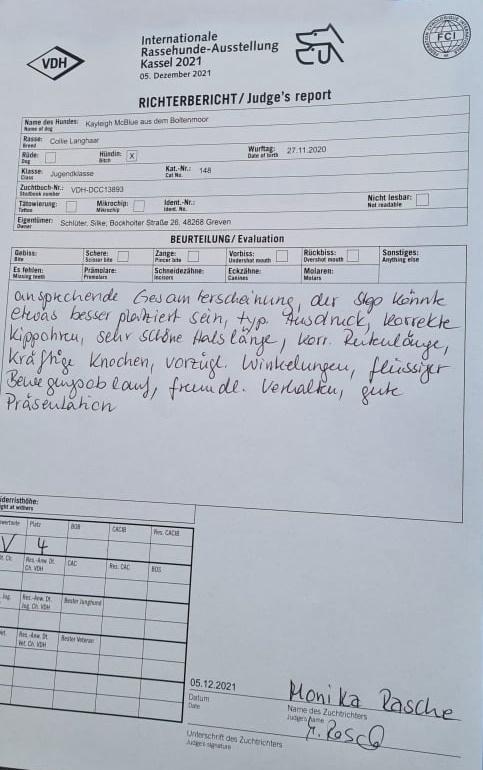 VDH
Internationale
Rassehunde-Ausstellung
Kassel 2021
05. Dezember 2021
FCI
RICHTERBERICHT/Judge's report
Name des Hundes: Kayleigh McBlue aus dem Boltenmoor
Name of dog
Rasse: Collie Langhaar
Breed
Rüde: Hündin: X Wurftag: 27.11.2020
Dog Bitch Date of birth
Klasse: Jugendklasse Kat.-Nr.: 148
Class Cat No.
Zuchtbuch-Nr.: VDH-DCC13893
Studbook number
Tätowierung: Mikrochip: Ident.-Nr.: Nicht lesbar:
Tattoo Microchip Ident. No. Not readable
Eigentümer: Schlüter, Silke, Bockholter Straße 26, 48268 Greven
Owner
BEURTEILUNG/Evaluation
Gebiss: Schere: Zange: Vorbiss: Rückbiss: Sonstiges:
Bite Scissor bite Pincer bite Undershot mouth Overshot mouth Anything else
Es fehlen: Prämolare: Schneidezähne: Eckzähne: Molaren:
Missing teeth Premolars Incisors Canines Molars
ansprechende Gesamterscheinung, der Stop könnte
etwas besser plaziert sein, typ. Ausdruck, korrekte
Kippohren, sehr schöne Halslänge, korr. Rutenlänge,
kräftige Knochen, vorzügl. Winkelungen, flüssiger
Bewegungsablauf, freundl. Verhalten, gute
Präsentation
iderristhöhe:
ight at withers
wertnote Platz BOB CACIB Res. CACIB
V 4
t. Ch. Res.-Anw. Dt. CAC Res. CAC BOS
Ch. VDH
Jug. Res.-Anw. Dt. Bester Junghund
Jug. Ch. VDH
Vet. Res.-Anw. Dt. Bester Veteran
Vet. Ch. VDH
05.12.2021 Monika Rasche
Datum Name des Zuchtrichters
Date Judge's name
Unterschrift des Zuchtrichters
Judge's signature